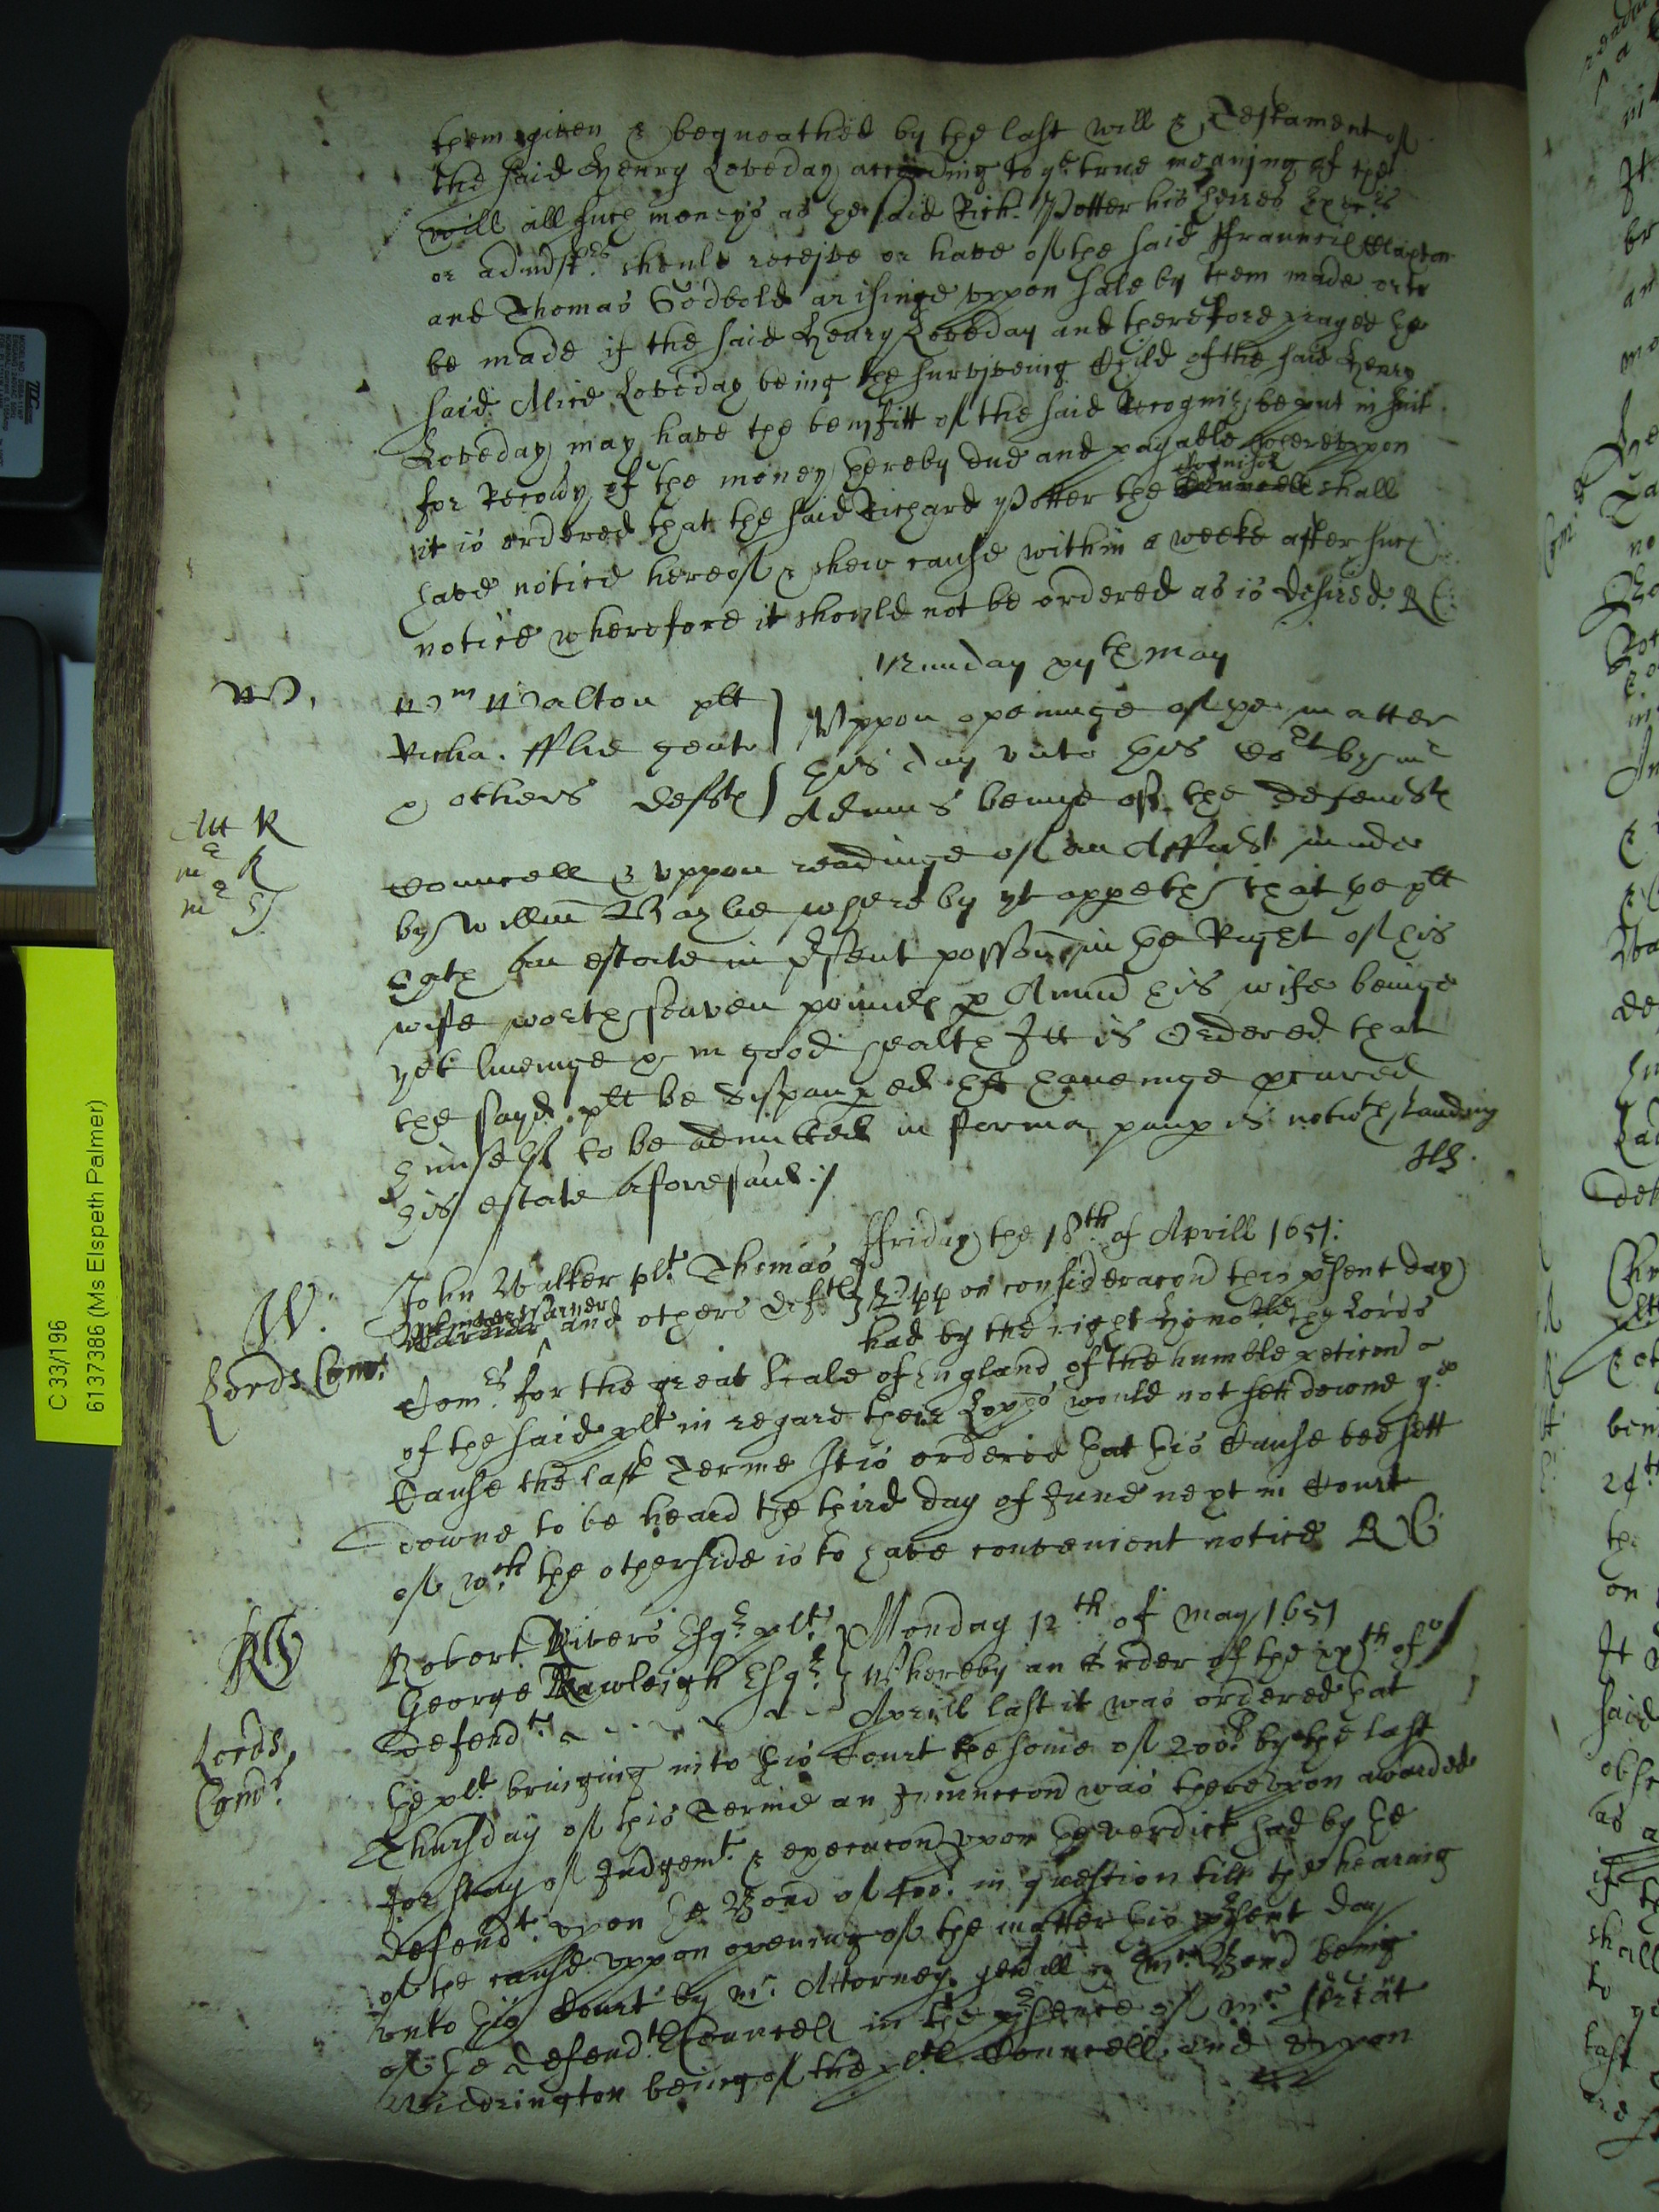 them given & bequeathed by the last will & Testament of
the said Henry Loveday according to ye true meaning of the
will all such moneys as the said Rich: Potter his heires Execrs
or admstrs should receive or have of the said Francis Claxton
and Thomas Godbold arisinge uppon sale by them made or to
be made if the said Henry Loveday and therefore prayed the
said Alice Loveday being the surviveing Child of the said Henry
Loveday may have the benifitt of the said Recogniz be put in suit
for Recovy of the money thereby due and payable whereupon
it is ordered that the said Richard Potter the Cognisor shall
have notice hereof & shew cause within a weeke after such
notice wherefore it should not be ordered as is desired. RC
Munday xijth May
W.
Wm Walton plt
Richa. fflie gent
& others defts
Uppon openinge of the matter
this day unto this Cort by mr
Adams beinge of the defendts
Att R
mr R
mr
Councell & uppon readinge of an Affidt made
by Willm Baylie whereby yt appeth that the plt
hath an estate in psent possion in the Right of his
wife worth seaven pounds p Annu his wife beinge
yet liveinge & in good health Itt is Ordered that
the sayd plt be dispaupered hee haveinge pcured
himselfe to be admitted in forma paupis notwthstanding
his estate aforesaid :/
Friday the 18th of Aprill 1651:
W.
John Walker plt Thomas
Warner and others defts
Uppon consideracon this psent day
had by the right honoble the Lords
Lords Comrs
Comrs for the great Seale of England of the humble peticon
of the said plt in regard their Lopps would not sett downe ye
Cause the last Terme It is ordered that this Cause bee sett
downe to be heard the third day of June next in Court
of wch the otherside is to have convenient notice RC
RG
Robert Rivers Esqr plt
George Rawleigh Esqr
Defendt
Monday 12th of May 1651
Whereby an Order of the xxth of
Aprill last it was ordered that
Lords
Comrs
the plt bringing into this Court the some of 200l by the last
Thursday of this Terme an Injunccon was thereupon awarded
for stay of Judgemt & execucon upon the verdict had by the
defendt upon the Bond of 400l in question till the hearing
of the cause uppon opening of the matter this psent day
unto this Court by mr Attorney genall & mr Bond being
of the defendts Councell in the psence of mr Serieant
Widdrington being of the plts Councell and upon
C 33/196
6137386 (Ms Elspeth Palmer)